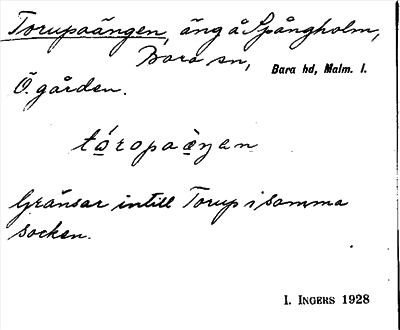 Torupaängen, äng å Spångholm,
Bara sn, Bara hd, Malm. l.
Ö. gården.
tóropaὲŋen
Gränsar intill Torup i samma
socken.
I. INGERS 1928